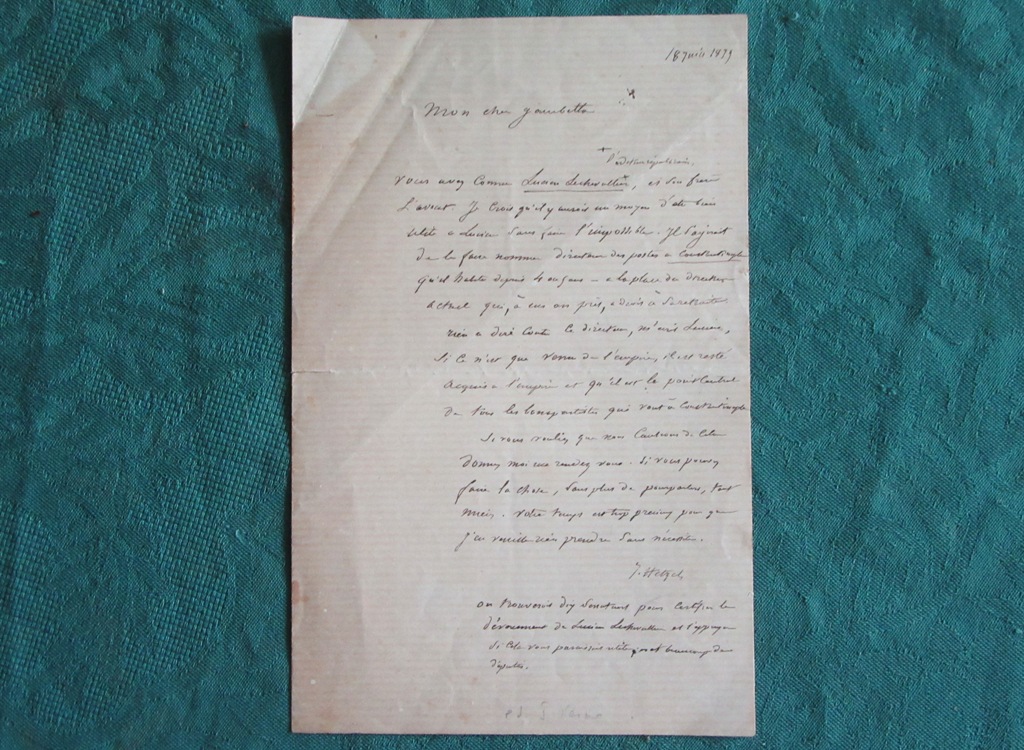 18 juin 1879
Mon cher gambetta
Vous avez connu Lucien, et son frère
L'avocat. Je crois qu'il y aurait un moyen d'etre bien
utile a Lucien sans faire l'impossible. Il s'agirait
de le faire nommer directeur des postes a Constantinople
qu'il habite depuis 4 ou 5 ans - a la place du directeur
actuel qui, à un an près, a droit à sa retraite
rien a dire contre ce directeur, m'écrit Lucien,
si ce n'est que venu de l'empire, il est resté
acquis a l'empire et qu'il est le point central
de tous les bonapartistes qui vont à Constantinople
Si vous vouliez que nous causions de cela
donnez moi un rendez vous. Si vous pouvez
faire la chose, sans plus de pourparlers, tant
mieux. Votre temps est trop precieux pour que
j'en veuille rien prendre sans nécessité.
J. Hetzel
on trouverait dix pour certifier le
dévouement de Lucien et l'appuyer
si cela vous paraissait utile, beaucoup de
députés.
ed. J. Verne